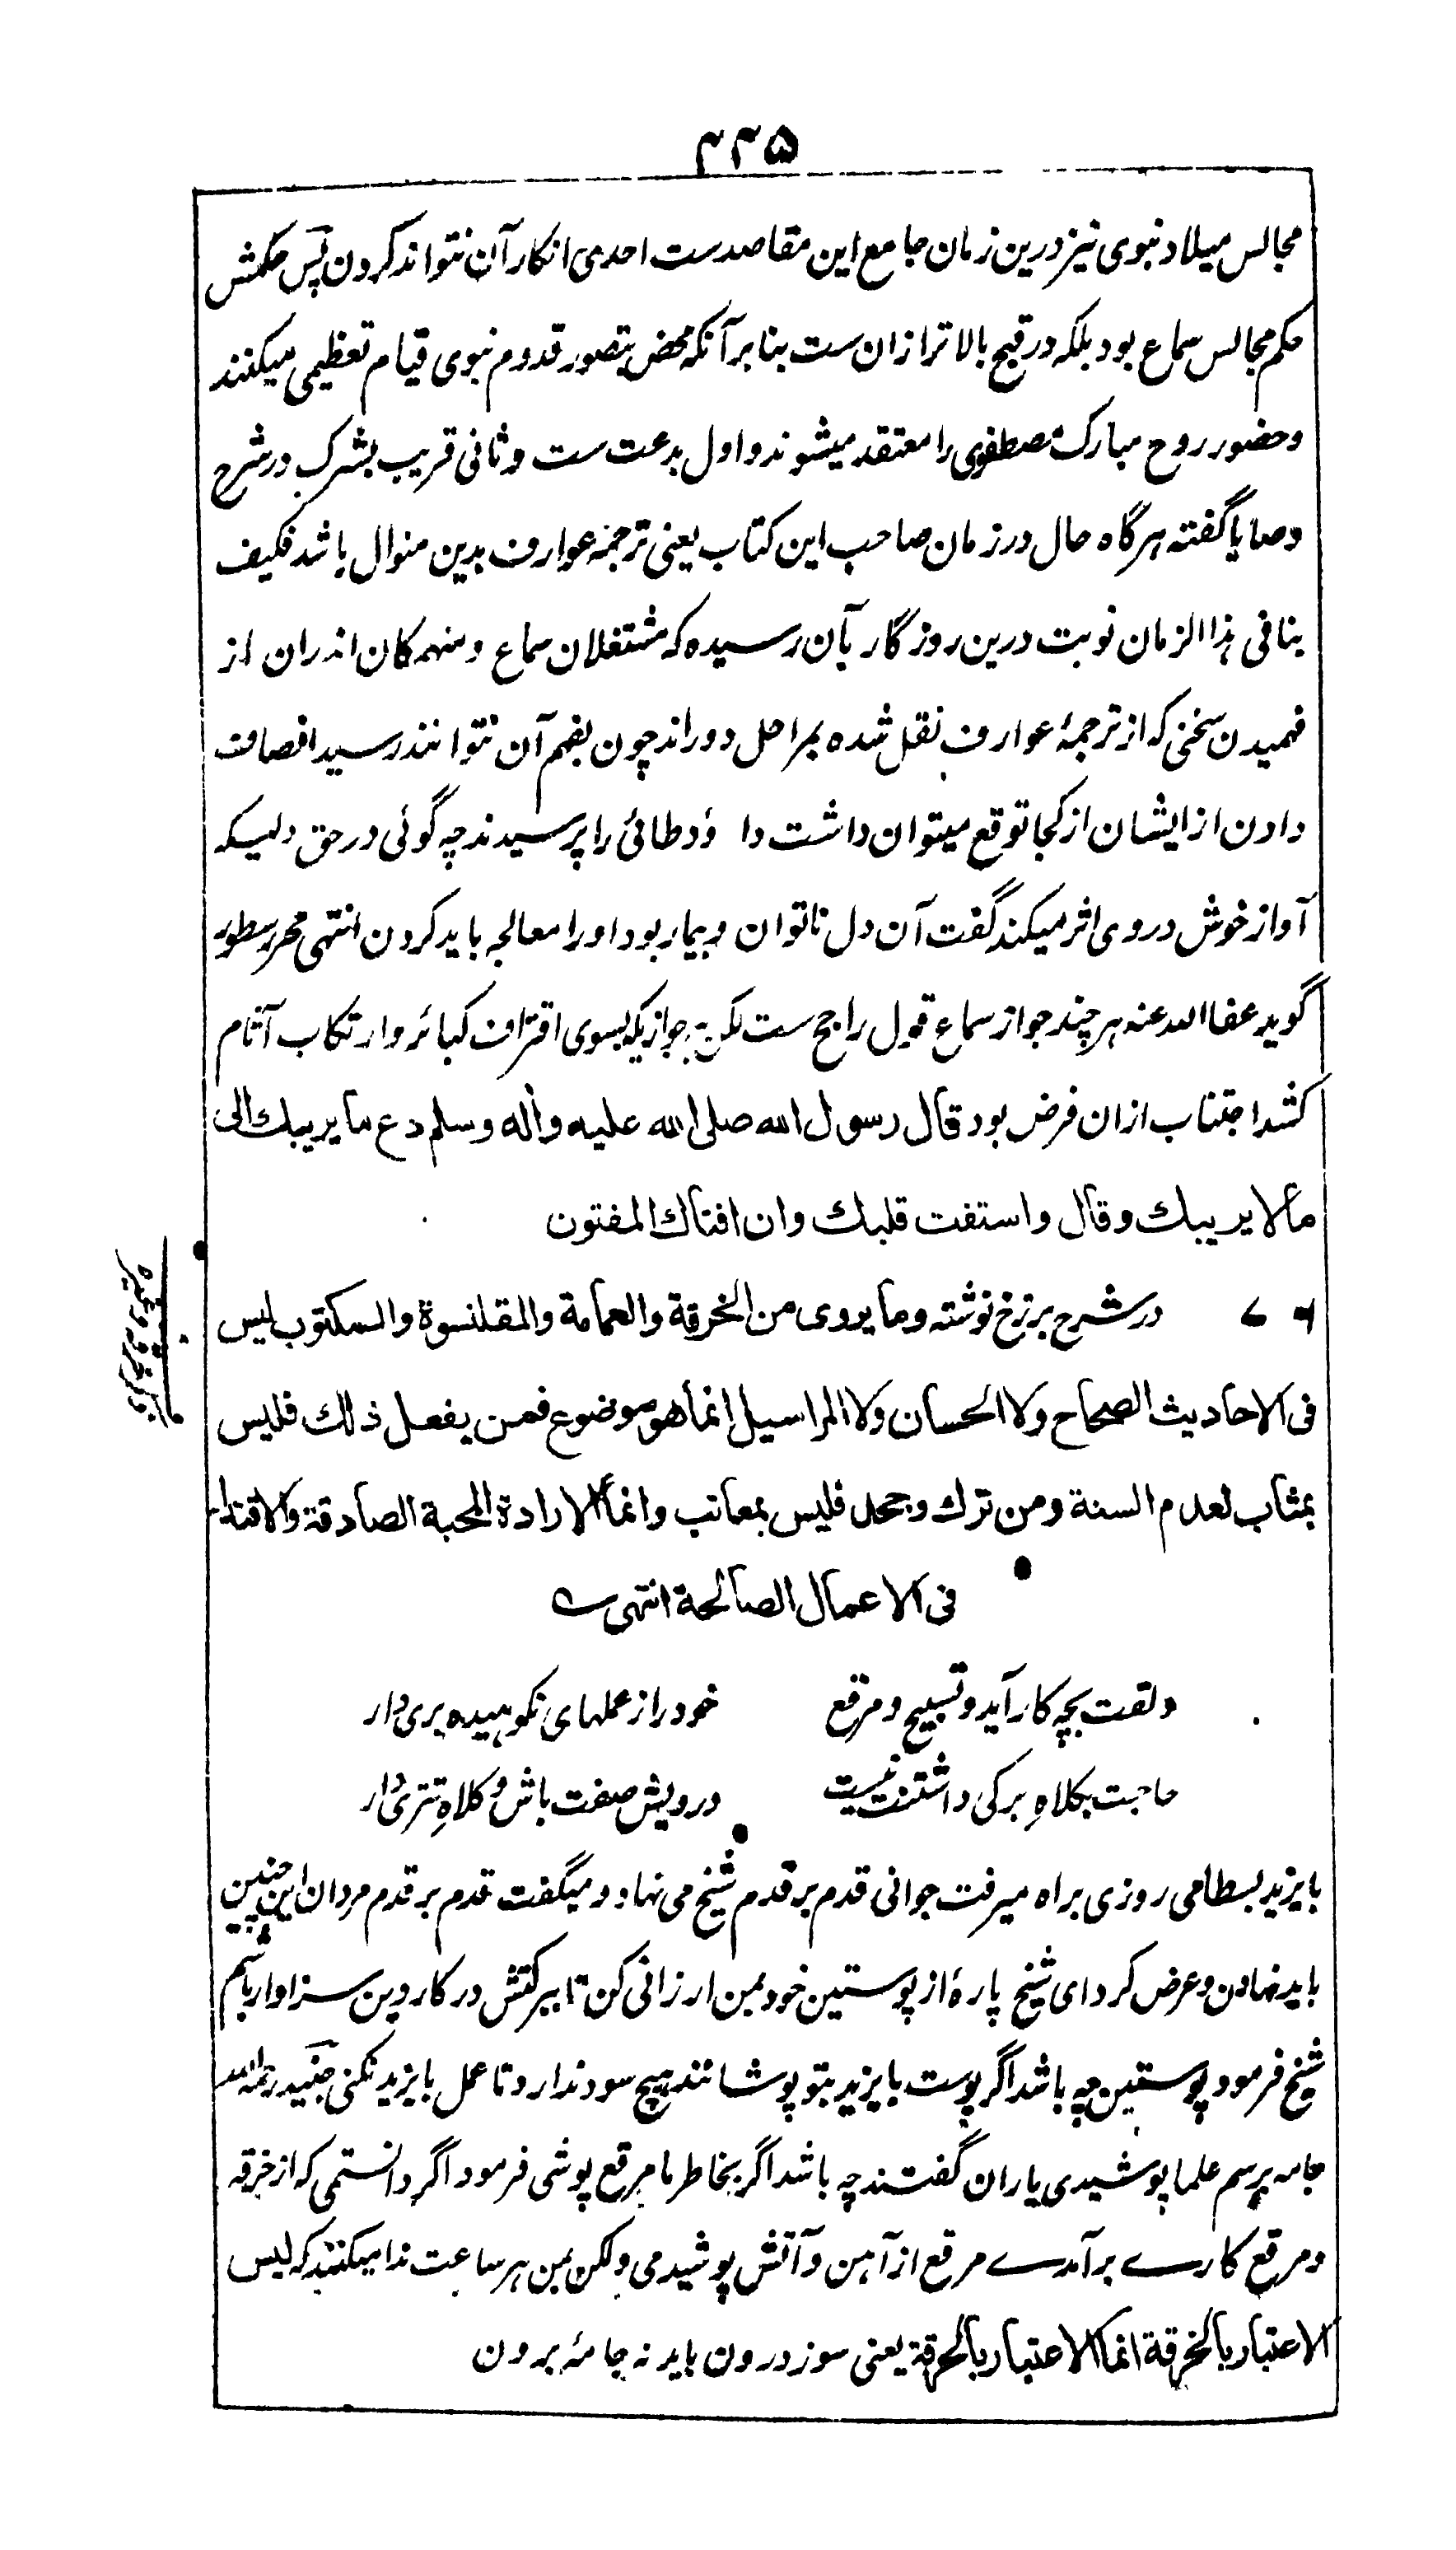 ۲۲۵
مجالس میلاد نبوی نیز درین زمان جامع این مقاصدست احدی انکار آن نتواند کردن پس حکمش
حکم مجالس سماع بود بلکه در قبح بالاتر ازان ست بنابر آنکه محض بتصور قدوم نبوی قیام تعظیمی میکنند
وحضور روح مبارک مصطفوی را معتقد میشوند و اول بدعت ست و ثانی قریب بشرک در شرح
وصایا گفته هرگاه حال در زمان صاحب این کتاب یعنی ترجمۂ عوارف بدین منوال باشد فکیف
بنا فی هذا الزمان نوبت درین روزگار بآن رسیده که مشتغلان سماع و منهمکان اندران از
فهمیدن سخنی که از ترجمۂ عوارف نقل شده بمراحل دور اند چون بفهم آن نتوانند رسید انصاف
دادن از ایشان از کجا توقع میتوان داشت دا ؤد طائی را پرسیدند چه گوئی در حق دلیکه
آواز خوش در وی اثر میکند گفت آن دل ناتوان و بیمار بود او را معالجه باید کردن انتهی محرر سطور
گوید عفا الله عنه هر چند جواز سماع قول راجح ست لکن بجوازیکه بسوی اقتراف کبائر و ارتکاب آثام
کشد اجتناب ازان فرض بود قال رسول الله صلی الله علیه وأله وسلم دع ما یریبك الی
ما لا یریبك وقال واستفت قلبك وان افتاك المفتون
۷۶ در شرح برزخ نوشته وما یروی من الخرقة والعمامة والمقلنسوة والسکتوب لیس
ذکر خرقه وغیره
فی الاحادیث الصحاح ولا الحسان ولا المراسیل إنما هو موضوع فمن یفعل ذلك فلیس
بمثاب لعدم السنة ومن ترك وجحد فلیس بمعاتب وانما الارادة المحبة الصادقة والاقتداء
فی الاعمال الصالحة انتهی
دلقت بچه کار آید و تسبیح و مرقع خود را ز عملهای نکوهیده بری دار
حاجت بکلاهِ برکی داشتنت نیست درویش صفت باش و کلاهِ تتری دار
بایزید بسطامی روزی براه میرفت جوانی قدم بر قدم شیخ می نهاد و میگفت قدم بر قدم مردان این چنین
باید نهادن و عرض کرد ای شیخ پارۂ از پوستین خود بمن ارزانی کن تا ببرکتش در کار دین سزاوار باشم
شیخ فرمود پوستین چه باشد اگر پوست بایزید بتو پوشانند هیچ سود ندارد تا عمل بایزید نکنی جنید رحمه الله
جامه برسم علما پوشیدی یاران گفتند چه باشد اگر بخاطر ما مرقع پوشی فرمود اگر دانستمی که از خرقه
و مرقع کارے برآمدے مرقع از آهن و آتش پوشیدمی ولکن بمن هر ساعت ندا میکنند که لیس
الاعتبار بالخرقة انما الاعتبار بالحرقة یعنی سوز درون باید نه جامۂ برون